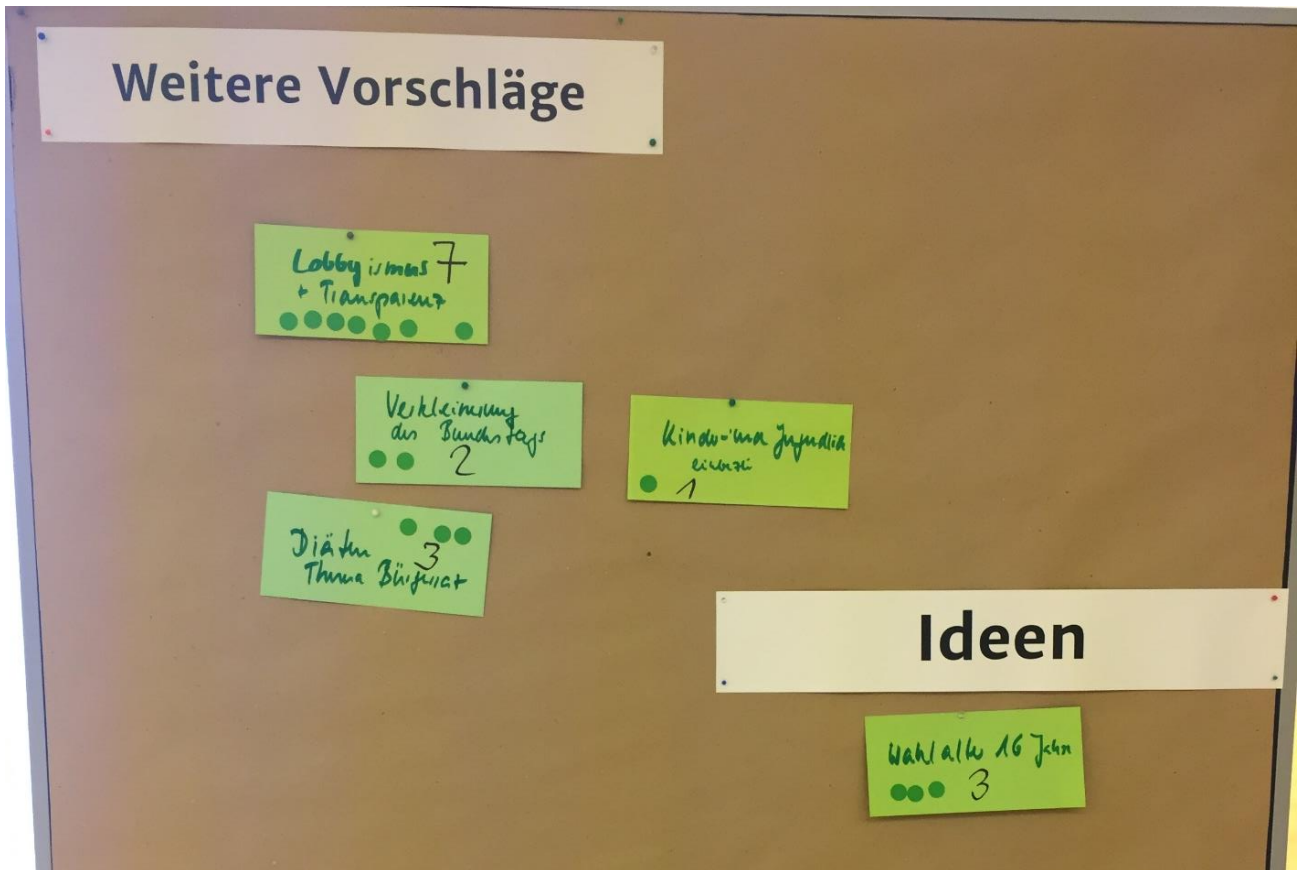 Weitere Vorschläge
Lobbyismus 7
+ Transparenz
Verkleinerung
des Bundestags
2
Kinder- und Jugendlich
1
3
Diäten
Thema Bürgerrat
Ideen
Wahlalter 16 Jahre
3